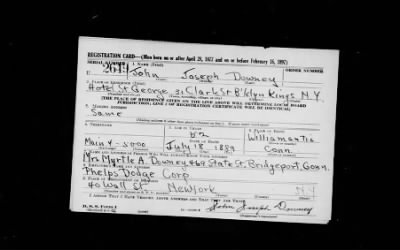 REGISTRATION CARD—(Men born on or after April 28, 1877 and on or before February 16, 1897)
SERIAL NUMBER 1. NAME (Print) ORDER NUMBER
John Joseph Downey
Hotel St George 51 Clark St B'klyn Kings N.Y.
[THE PLACE OF RESIDENCE GIVEN ON THE LINE ABOVE WILL DETERMINE LOCAL BOARD
JURISDICTION; LINE 2 OF REGISTRATION CERTIFICATE WILL BE IDENTICAL]
Same
52 Williamantic
Main 4-5000 July 18 1889 Conn.
Mrs Myrtle A Downey 469 State St. Bridgeport, Conn.
Phelps Dodge Corp
40 Wall St New York N.Y.
I AFFIRM THAT I HAVE VERIFIED ABOVE ANSWERS AND THAT THEY ARE TRUE.
John Joseph Downey